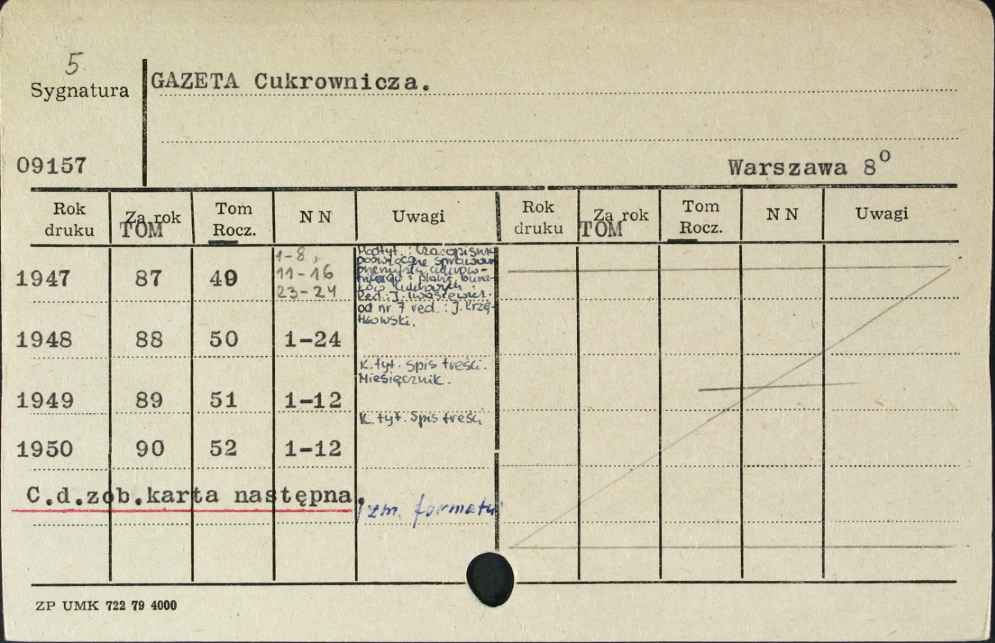 5
Sygnatura GAZETA Cukrownicza.
09157 Warszawa 8°
Rok druku Za rok TOM Tom Rocz. N N Uwagi Rok druku Za rok TOM Tom Rocz. N N Uwagi
1947 87 49 1-8, 11-16 23-24
Podtyt.: Czasopismo
poświęcone sprawom
przemysłu cukrow-
niczego i plant. bura-
ków cukrowych.
Red.: J.
od nr 7 red.: J.
1948 88 50 1-24
K. tyt. spis treści.
Miesięcznik.
1949 89 51 1-12
K. tyt. Spis treści
1950 90 52 1-12
C.d.zob.karta następna.
zm. formatu
ZP UMK 722 79 4000